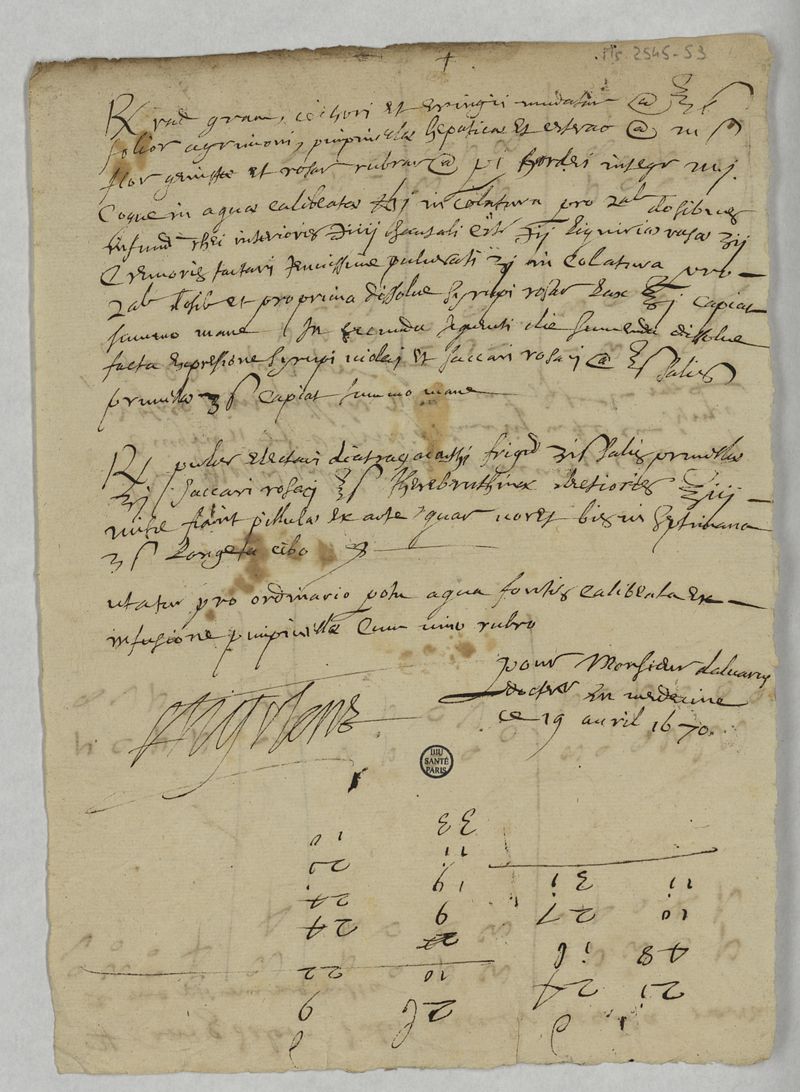 Ms 2545-53
+
℞ rad gram, cichori et eringii mudatar @ ℥ ß
folior agrimoni, pimpinelle hepatica et ceterac @ m ß
flor geniste et rosar rubrar @ p j hordei integr m j.
Coque in aqua calibeata in colatura pro 2ab dosibus
infund rhei interiores santali citr ʒij liquiricia rasa ʒij
Cremoris tartari tenuissime puluerati ʒj in colatura pro
2ab dosib et pro prima dissolue syrupi rosar lax ℥j capiat
summo mane In secunda sequenti die sumenda dissolue
facta expresione syrupi violaj et saccari rosacj @ ℥ß salis
prunella ʒß capiat summo mane
℞ puluer electari diatragacanthj frigid salis prunella
ʒij saccari rosacj ℥ß therebenthinæ
misce fiant pillula ex arte quar uoret bis in septimana
ʒß longe a cibo
utatur pro ordinario potu aqua fontis calibeata ex
infusione pimpinella cum uino rubro
pour Monsieur
docteur en medecine
ce 19 auril 1670.
BIU
SANTÉ
PARIS
9 26
22 10 21 24
24 9 48 16
24 19 10 27
20 11 11 31
10 33